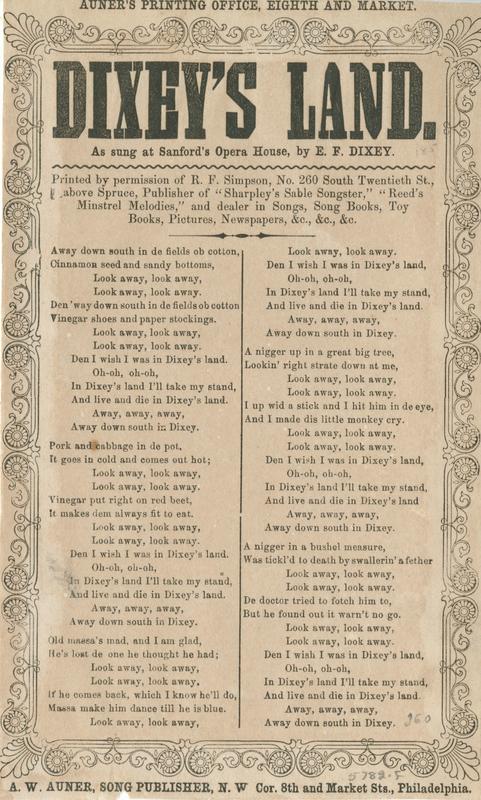 AUNER'S PRINTING OFFICE, EIGHTH AND MARKET.
DIXEY'S LAND.
As sung at Sanford's Opera House, by E. F. DIXEY.
Printed by permission of R. F. Simpson, No. 260 South Twentieth St.,
above Spruce, Publisher of "Sharpley's Sable Songster," "Reed's
Minstrel Melodies," and dealer in Songs, Song Books, Toy
Books, Pictures, Newspapers, &c., &c., &c.
Away down south in de fields ob cotton,
Cinnamon seed and sandy bottoms,
Look away, look away,
Look away, look away.
Den 'way down south in de fields ob cotton
Vinegar shoes and paper stockings.
Look away, look away,
Look away, look away.
Den I wish I was in Dixey's land.
Oh-oh, oh-oh,
In Dixey's land I'll take my stand,
And live and die in Dixey's land.
Away, away, away,
Away down south in Dixey.
Pork and cabbage in de pot,
It goes in cold and comes out hot;
Look away, look away,
Look away, look away.
Vinegar put right on red beet,
It makes dem always fit to eat.
Look away, look away,
Look away, look away.
Den I wish I was in Dixey's land.
Oh-oh, oh-oh,
In Dixey's land I'll take my stand,
And live and die in Dixey's land.
Away, away, away,
Away down south in Dixey.
Old massa's mad, and I am glad,
He's lost de one he thought he had;
Look away, look away,
Look away, look away.
If he comes back, which I know he'll do,
Massa make him dance till he is blue.
Look away, look away,
Look away, look away.
Den I wish I was in Dixey's land,
Oh-oh, oh-oh,
In Dixey's land I'll take my stand,
And live and die in Dixey's land.
Away, away, away,
Away down south in Dixey.
A nigger up in a great big tree,
Lookin' right strate down at me,
Look away, look away,
Look away, look away.
I up wid a stick and I hit him in de eye,
And I made dis little monkey cry.
Look away, look away,
Look away, look away.
Den I wish I was in Dixey's land,
Oh-oh, oh-oh,
In Dixey's land I'll take my stand,
And live and die in Dixey's land
Away, away, away,
Away down south in Dixey.
A nigger in a bushel measure,
Was tickl'd to death by swallerin' a fether
Look away, look away,
Look away, look away.
De doctor tried to fotch him to,
But he found out it warn't no go.
Look away, look away.
Look away, look away.
Den I wish I was in Dixey's land,
Oh-oh, oh-oh,
In Dixey's land I'll take my stand,
And live and die in Dixey's land.
Away, away, away,
Away down south in Dixey.
260
A. W. AUNER, SONG PUBLISHER, N. W Cor. 8th and Market Sts., Philadelphia.